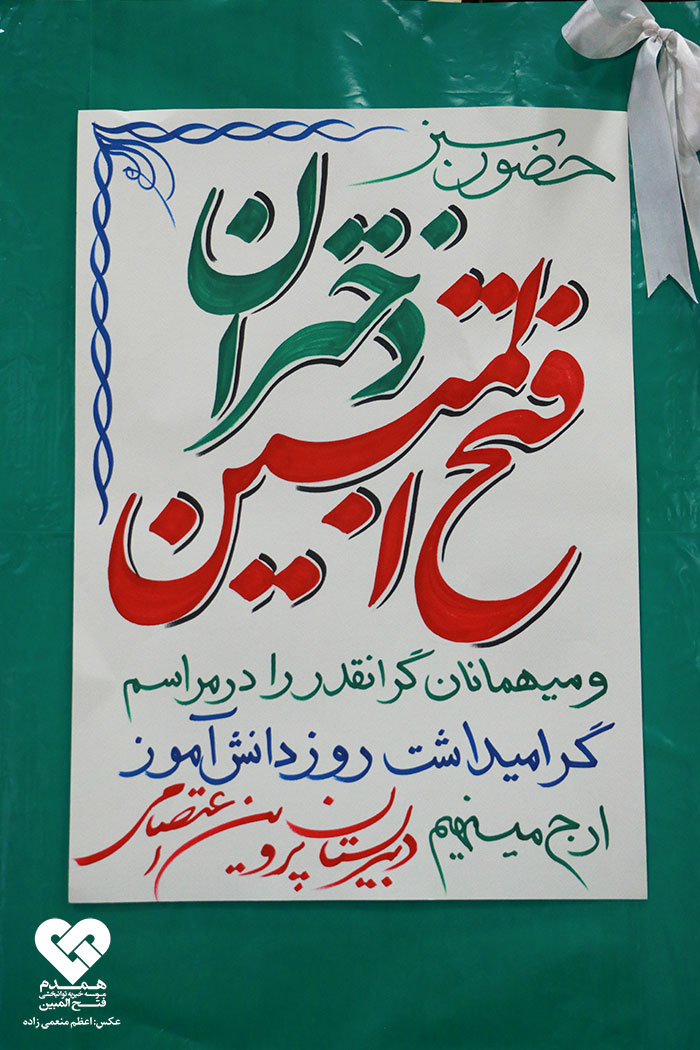 حضور سبز
دختران
فتح المبین
و میهمانان گرانقدر را در مراسم
گرامیداشت روز دانش‌آموز
ارج مینهیم دبیرستان پروین اعتصامی
همدم
موسسه خیریه توانبخشی
فتح المبین
عکس: اعظم منعمی زاده